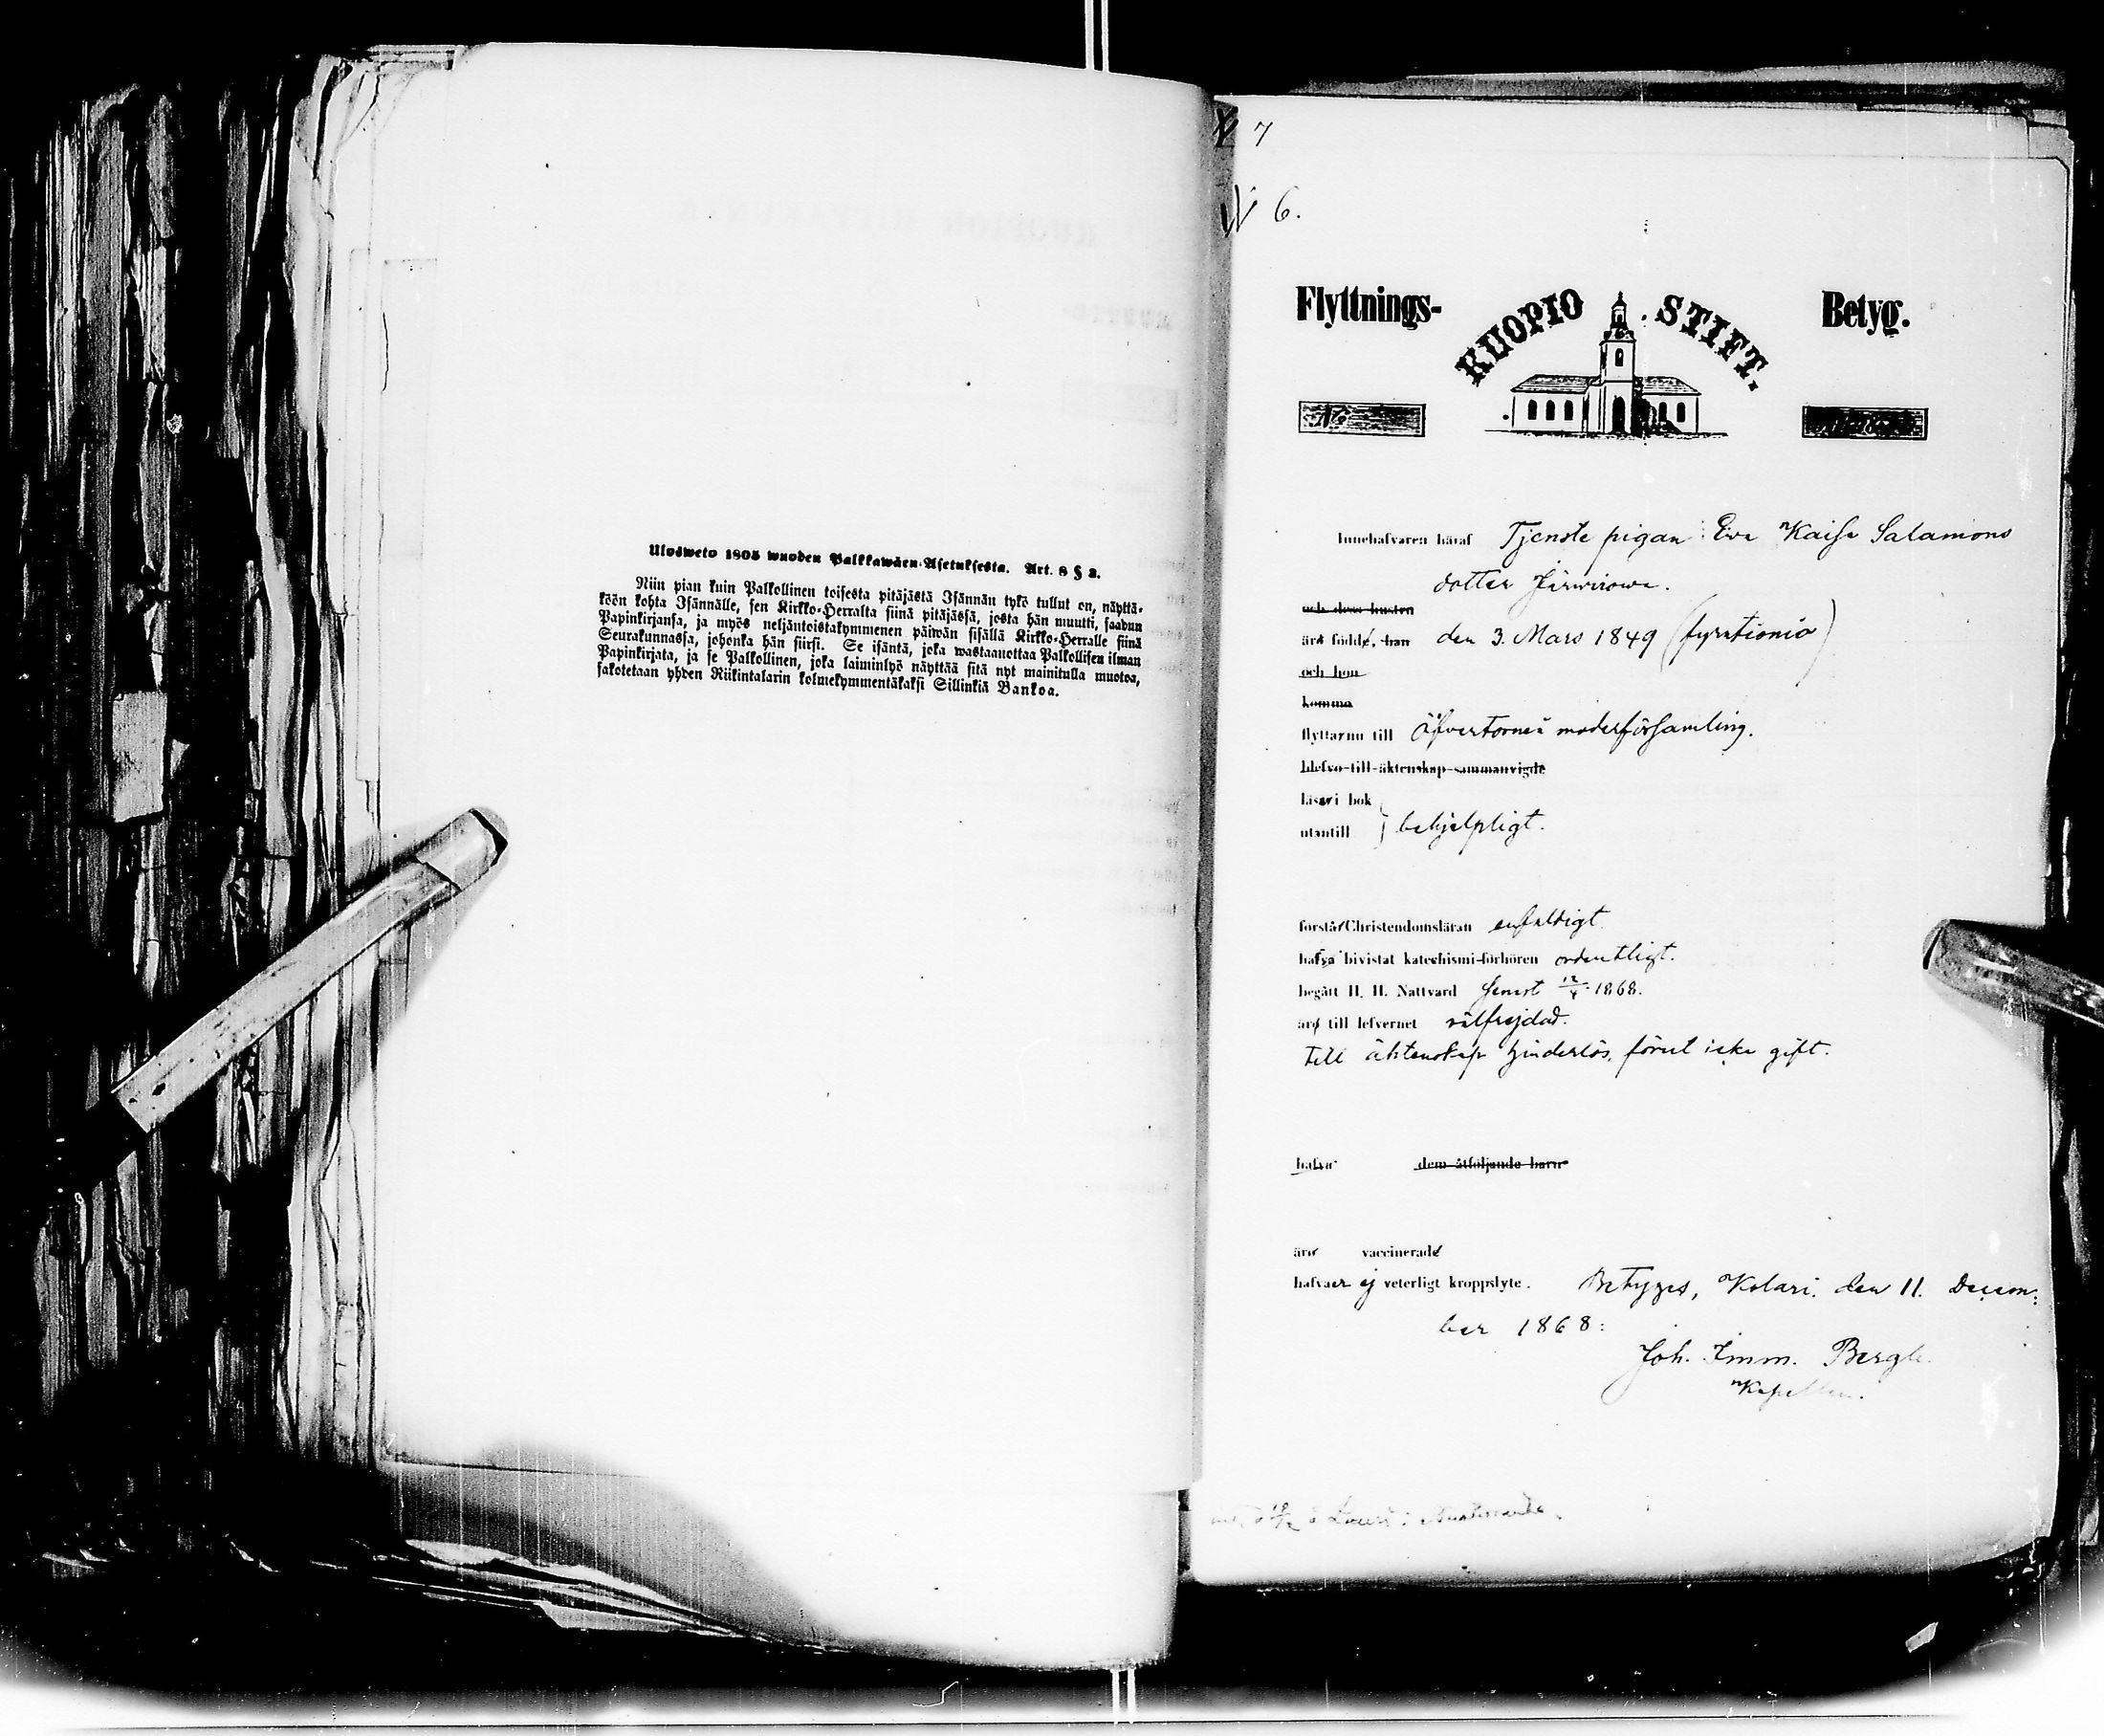 Ulosweto 1805 wuoden Palkkawäen-Asetuksesta. Art. 8 § 2.
Niin pian kuin Palkollinen toisesta pitäjästä Isännän tykö tullut on, näyttä-
köön kohta Isännälle, sen Kirkko-Herralta siinä pitäjässä, josta hän muutti, saadun
Papinkirjansa, ja myös neljäntoistakymmenen päiwän sisällä Kirkko-Herralle siinä
Seurakunnassa, johonka hän siirsi. Se isäntä, joka wastaanottaa Palkollisen ilman
Papinkirjata, ja se Palkollinen, joka laiminlyö näyttää sitä nyt mainitulla muotoa,
sakotetaan yhden Riikintalarin kolmekymmentäkaksi Sillinkiä Bankoa.
7
N 6.
Flyttnings- KUOPIO STIFT. Betyg.
No
Innehafvaren häraf Tjenste pigan Eva Kaisa Salamons
dotter Järvirowa.
och dess hustru
äro födde, han den 3. Mars 1849 (fyrationio)
och hon
komma
flyttarnu till Öfvertorneå moderförsamling.
blefvo till äktenskap sammanvigde
läsa i bok
utantill } behjelpligt.
förstår Christendomsläran enfaldigt
hafva bivistat katechismi-förhören ordentligt.
begått H. H. Nattvard senast 12/4 1868.
äro till lefvernet välfrejdad.
till äktenskap hinderlös, förut icke gift.
hafva dem åtföljande barn
äro vaccinerade
hafva ej veterligt kroppslyte. Betyges, Kolari den 11. Decem:
ber 1868:
Joh. Imm. Bergh
Kapellan.